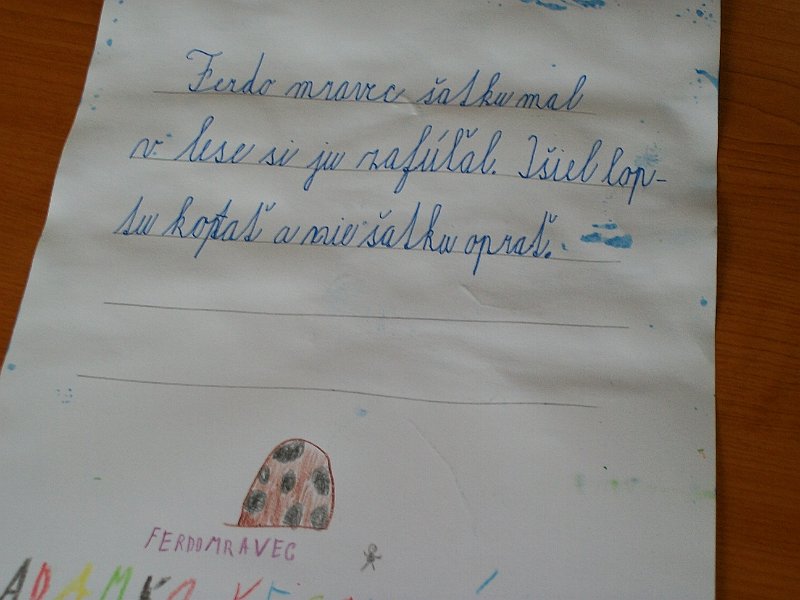 Ferdo mravec šatku mal
v lese si ju zafúľal. Išiel lop-
tu kopať a nie šatku oprať.
FERDOMRAVEC
ADAMKA